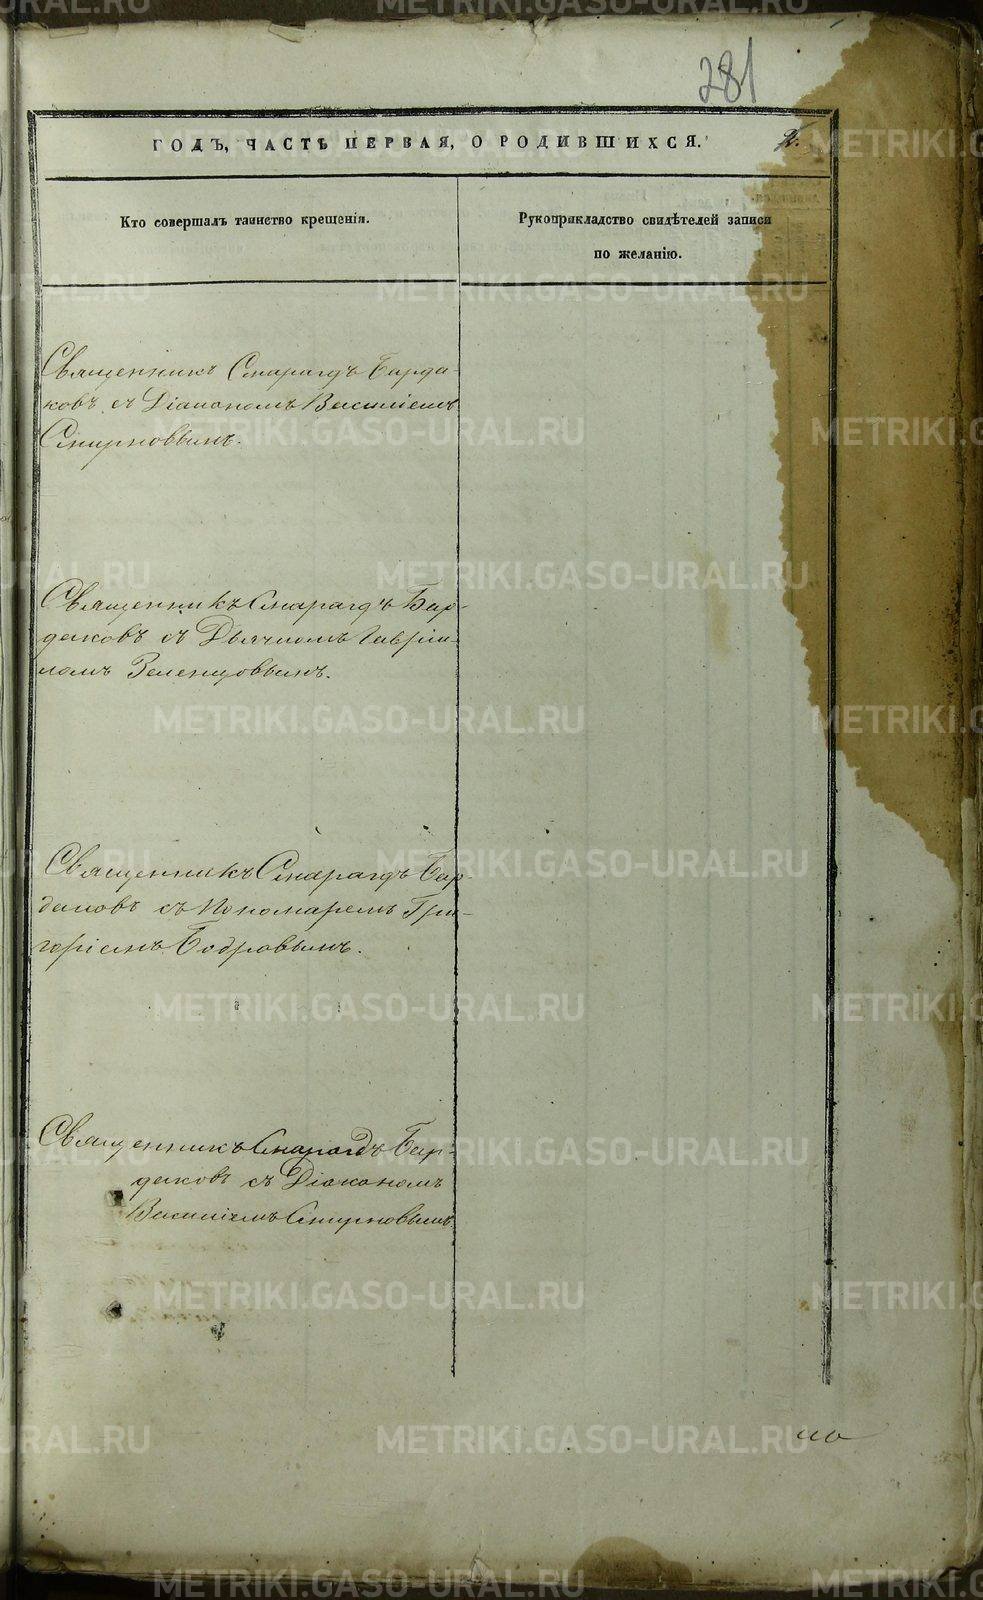 281
ГОДЪ, ЧАСТЬ ПЕРВАЯ, О РОДИВШИХСЯ. 2.
Кто совершалъ таинство крещенія.
Рукоприкладство свидѣтелей записи
по желанію.
Священникъ Смарагдъ Барда-
ковъ съ Діакономъ Василіемъ
Смирновымъ.
Священникъ Смарагдъ Бар-
даковъ съ Дьячкомъ Гаврiи-
ломъ Зеленцовымъ.
Священникъ Смарагдъ Бар-
даковъ съ Пономаремъ Гри-
горіемъ Бобровымъ.
Священникъ Смарагдъ Бар-
даковъ съ Діакономъ
Василіемъ Смирновымъ
METRIKI.GASO-URAL.RU